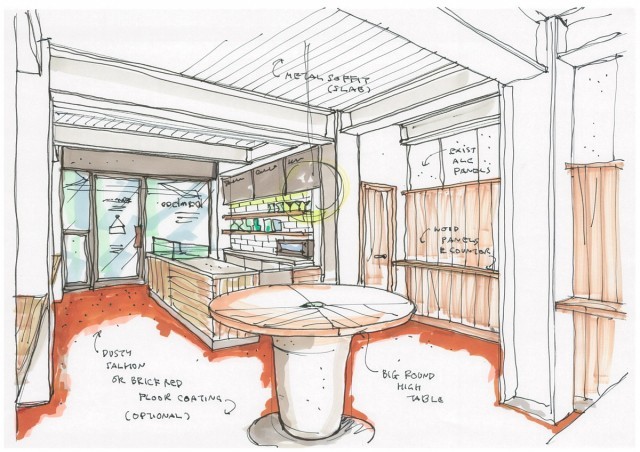 METAL SOFFIT
(SLAB)
EXIST
ALC
PANELS
WOOD
PANELS
& COUNTER
DUSTY
SALMON
OR BRICK RED
FLOOR COATING
(OPTIONAL)
BIG ROUND
HIGH
TABLE